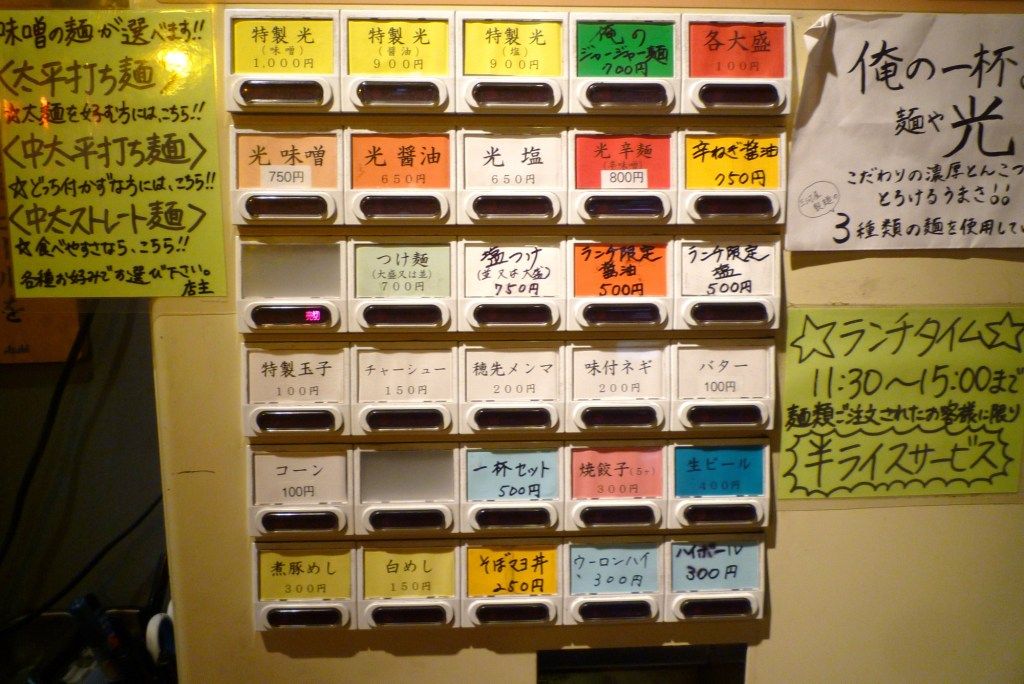 味噌の麺が選べます!!
〈太平打ち麺〉
☆太麺を好む方には、こちら!!
〈中太平打ち麺〉
☆どっち付かずな方には、こちら!!
〈中太ストレート麺〉
☆食べやすさなら、こちら!!
各種お好みでお選び下さい。
店主
Asahi
特製 光
(味噌)
1,000円
特製 光
(醤油)
900円
特製 光
(塩)
900円
俺の
ジャージャー麺
700円
各大盛
100円
光 味噌
750円
光 醤油
650円
光 塩
650円
光 辛麺
(辛味噌)
800円
辛ねぎ醤油
750円
売切
つけ麺
(大盛又は並)
700円
塩つけ
(並又は大盛)
750円
ランチ限定
醤油
500円
ランチ限定
塩
500円
特製玉子
100円
チャーシュー
150円
穂先メンマ
200円
味付ネギ
200円
バター
100円
コーン
100円
一杯セット
500円
焼餃子(5ヶ)
300円
生ビール
400円
煮豚めし
300円
白めし
150円
そぼマヨ丼
250円
ウーロンハイ
300円
ハイボール
300円
俺の一杯
麺や 光
こだわりの濃厚とんこつ
とろけるうまさ!!
三河屋
製麺の
3種類の麺を使用してい
☆ランチタイム☆
11:30〜15:00まで
麺類ご注文されたお客様に限り
半ライスサービス